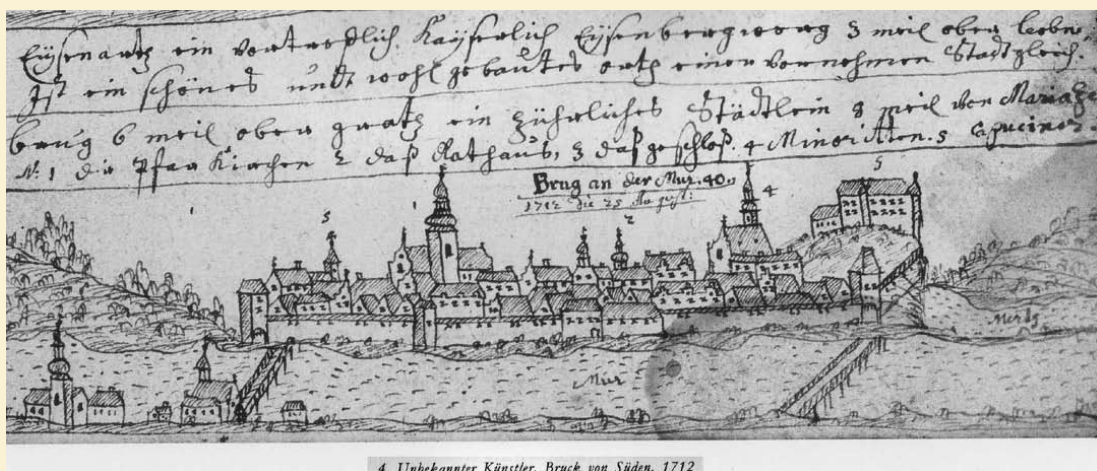 Eÿsenartz ein vortredlich. Kaÿserlich Eÿsenbergwerg 3 meil ober Leoben
Ist ein schönes undt wohl gebautes orth einer vornehmen Stadt gleich.
brug 6 meil ober gratz ein zührliches Städtlein 8 meil von Mariaze
N: 1 die Pfar Kirchen 2 daß Rathaus, 3 daß geschloß. 4 Minoritten. 5 Capuciner.
Brug an der Mur. 40.
1712 die 25 August:
5
1
2
4
5
Mertz
Mur
4 Unbekannter Künstler, Bruck von Süden, 1712